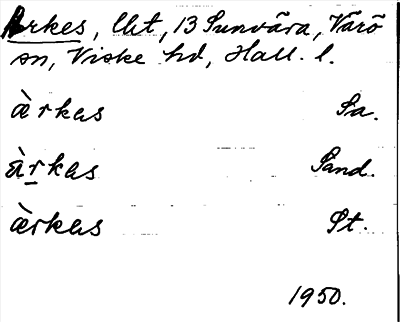 Arkes, lht, 13 Sunvära, Värö
sn, Viske hd, Hall. l.
àrkas Sa.
àrkas Sand.
àrkas St.
1950.